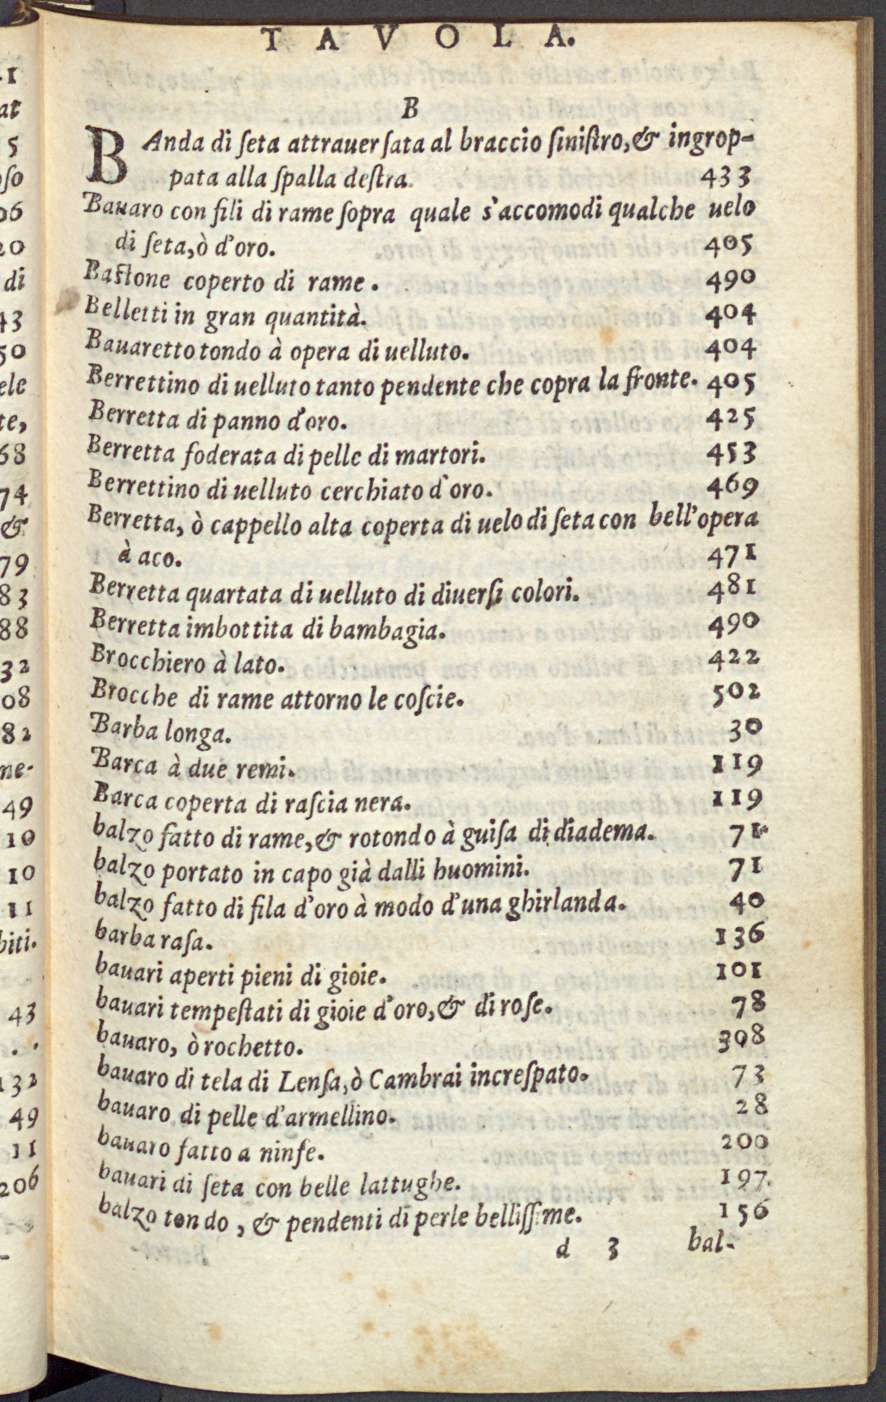 TAVOLA.
B
BAnda di ſeta attrauerſata al braccio ſiniſtro,& ingrop-
pata alla ſpalla deſtra. 433
Bauaro con fili di rame ſopra quale s'accomodi qualche uelo
di ſeta,ò d'oro. 405
Baſtone coperto di rame. 490
Belletti in gran quantità. 404
Bauaretto tondo à opera di uelluto. 404
Berrettino di uelluto tanto pendente che copra la fronte. 405
Berretta di panno d'oro. 425
Berretta foderata di pelle di martori. 453
Berrettino di uelluto cerchiato d'oro. 469
Berretta, ò cappello alta coperta di uelo di ſeta con bell'opera
à aco. 471
Berretta quartata di uelluto di diuerſi colori. 481
Berretta imbottita di bambagia. 490
Brocchiero à lato. 422
Brocche di rame attorno le coſcie. 502
Barba longa. 30
Barca à due remi. 119
Barca coperta di raſcia nera. 119
balzo fatto di rame,& rotondo à guiſa di diadema. 71
balzo portato in capo già dalli huomini. 71
balzo fatto di fila d'oro à modo d'una ghirlanda. 40
barba raſa. 136
bauari aperti pieni di gioie. 101
bauari tempeſtati di gioie d'oro,& di roſe. 78
bauaro, ò rochetto. 308
bauaro di tela di Lenſa,ò Cambrai increſpato. 73
bauaro di pelle d'armellino. 28
bauaro fatto a ninfe. 200
bauari di ſeta con belle lattughe. 197.
balzo tondo, & pendenti di perle belliſſime. 156
d 3 bal-